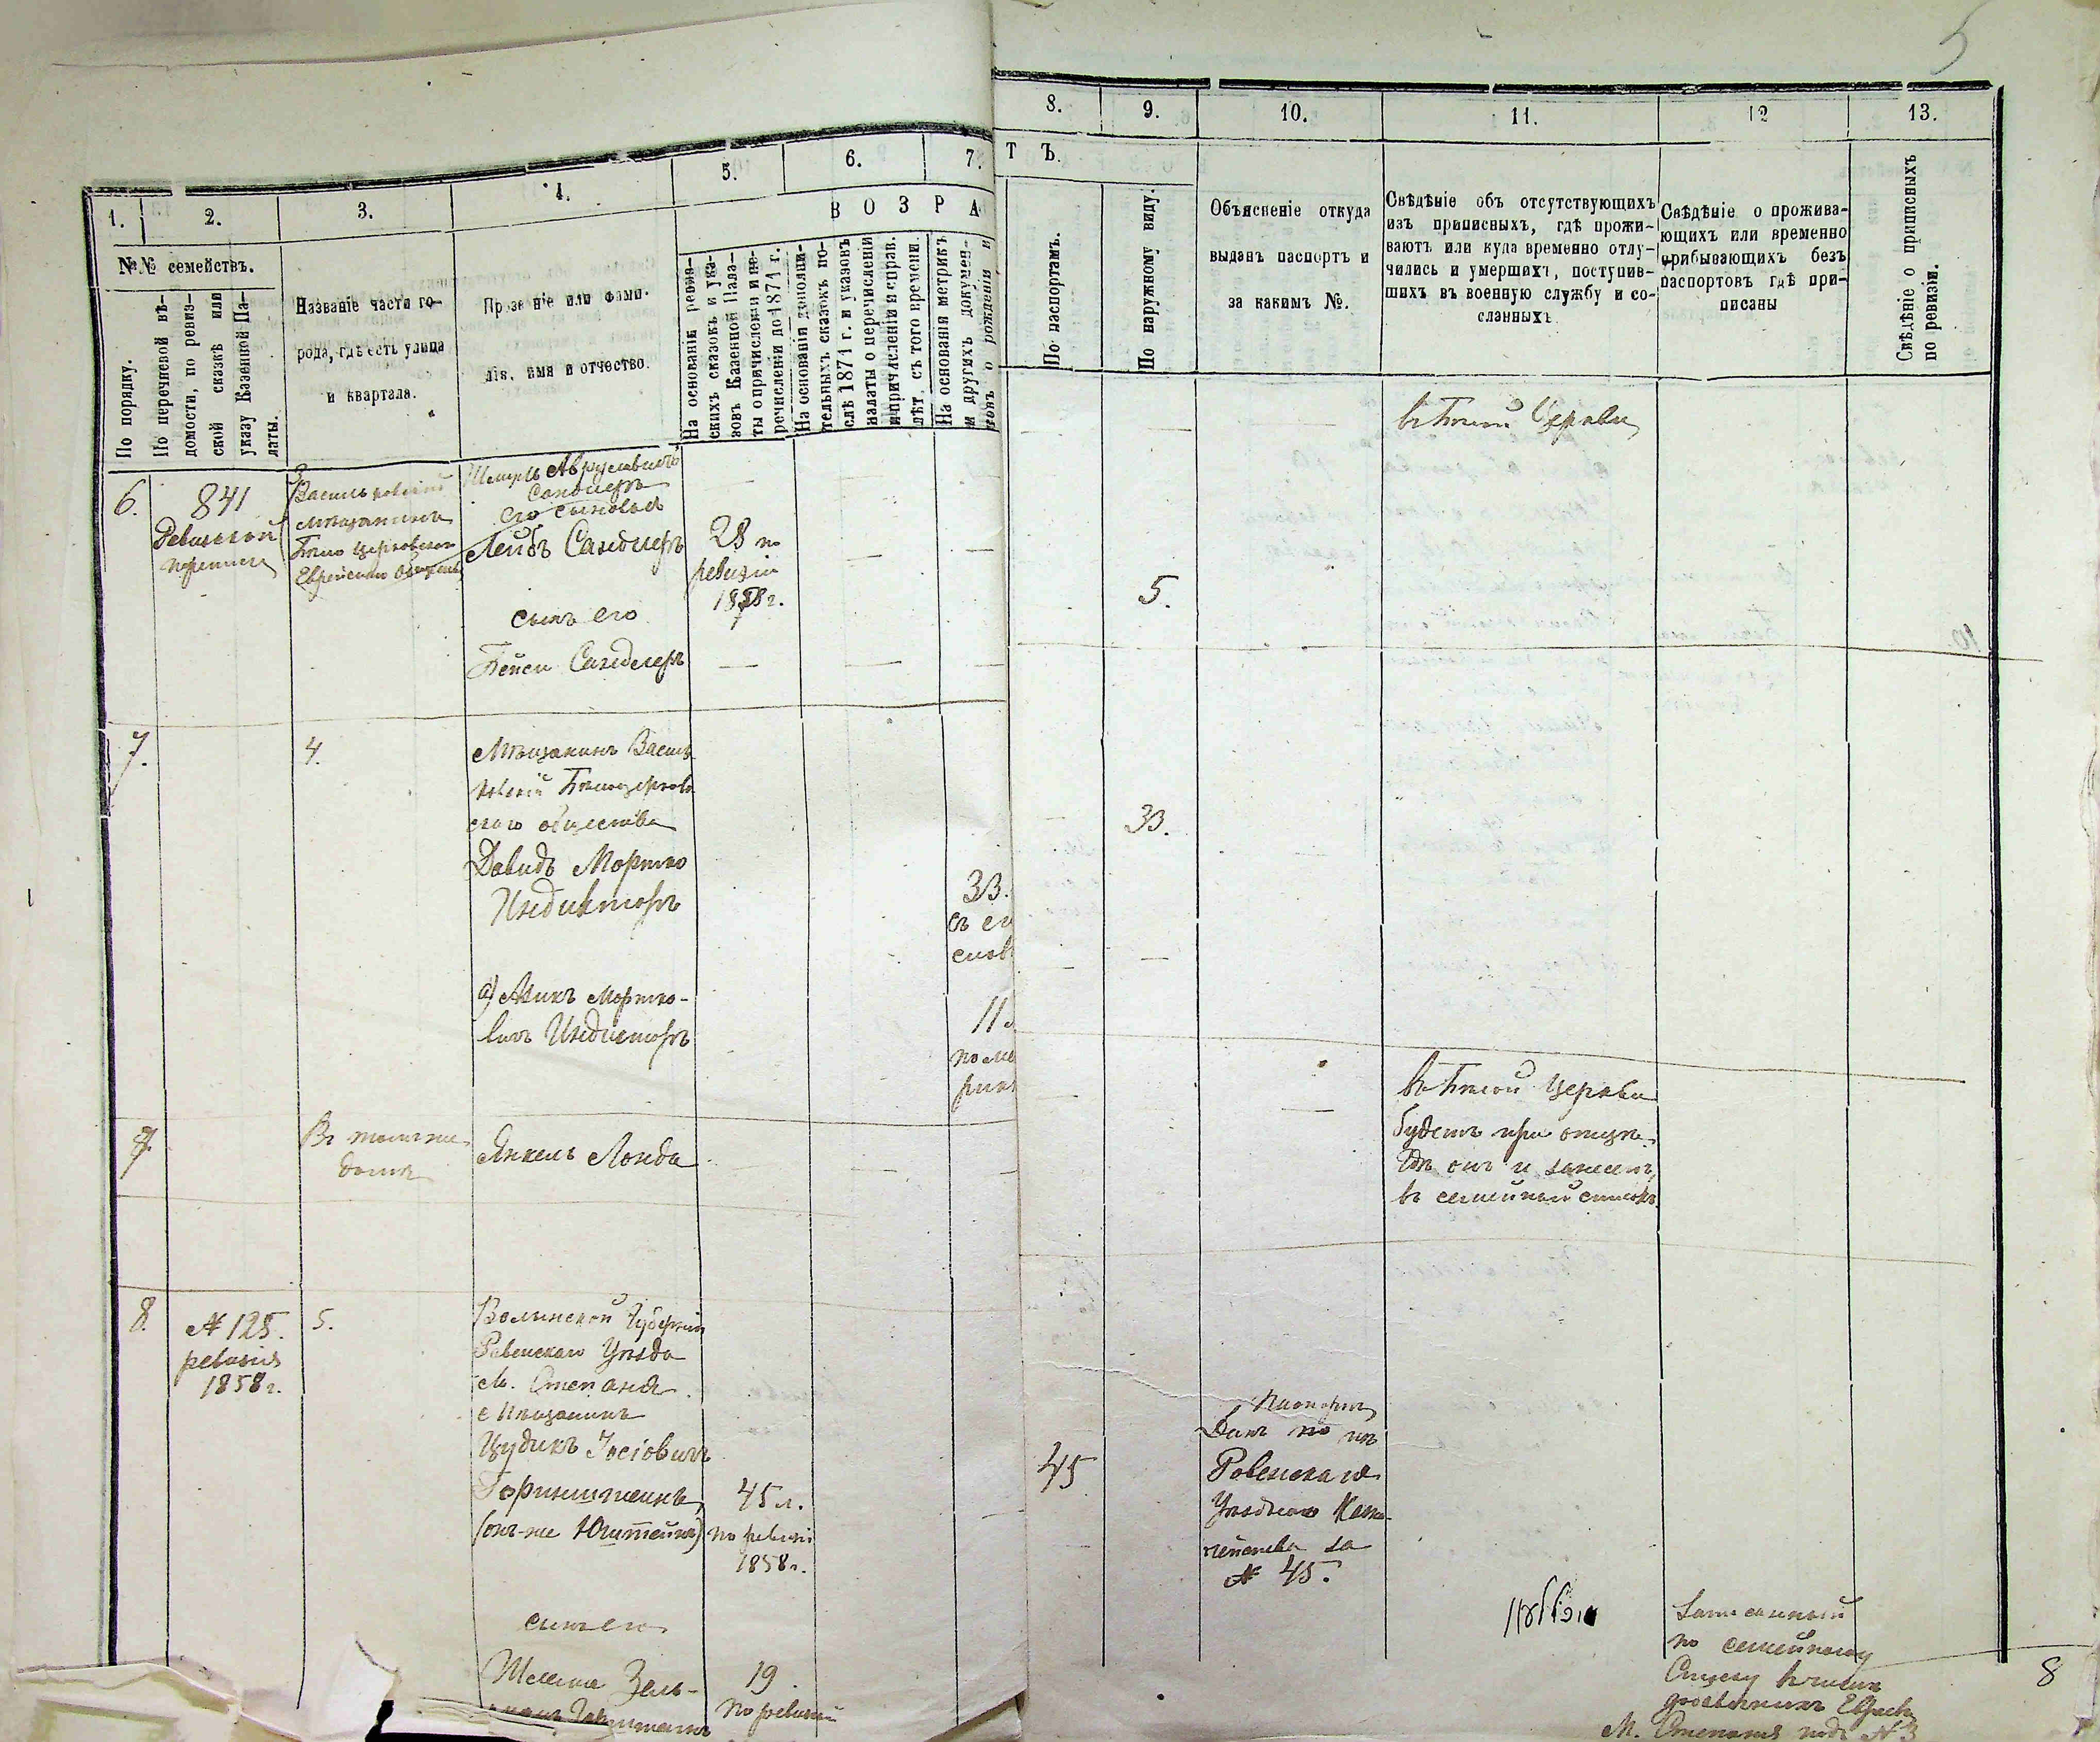 5
1.
2.
3.
4.
5.
6.
7.
8.
9.
10.
11.
12
13.
№№ семействъ.
По порядку.
По перечневой вѣ-
домости, по ревиз-
ской сказкѣ или
указу Казенной Па-
латы.
Названіе части го-
рода, гдѣ есть улица
и квартала.
Прозваніе или фами-
лія, имя и отчество.
В О З Р А
Т Ъ.
На основаніи ревиз-
скихъ сказокъ и ука-
зовъ Казенной Пала-
ты о причисленіи и пе-
речисленіи до 1871 г.
На основаніи дополни-
тельныхъ сказокъ по-
слѣ 1871 г. и указовъ
палаты о перечисленіи
и причисленіи и справ.
лѣт. съ того времени.
На основаніи метрикъ
и другихъ докумен-
товъ о рожденіи и
По паспортамъ.
По наружному виду.
Объясненіе откуда
выданъ паспортъ и
за какимъ №.
Свѣдѣніе объ отсутствующихъ
изъ приписныхъ, гдѣ прожи-
ваютъ или куда временно отлу-
чились и умершихъ, поступив-
шихъ въ военную службу и со-
сланныхъ.
Свѣдѣніе о прожива-
ющихъ или временно
прибывающихъ безъ
паспортовъ гдѣ при-
писаны
Свѣдѣніе о приписныхъ
по ревизіи.
6.
841
Ревизской
переписи
3
Васильковскій
мѣщанинъ
Бѣло церковскаго
Еврейскаго Общества
Сандлеръ
его сыновья
Лейбъ Сандлеръ
28 по
ревизіи
1858 г.
сынъ его
Бейси Сандлеръ
5.
въ Бѣлой Церкви
7.
4.
Мѣщанинъ Василь
ковскій Бѣлоцерков
скаго общества
Давидъ Моргко
Индикторъ
33.
съ ег
слов
33.
а) Азикъ Моргко-
вичъ Индикторъ
11
по ме
рик
7.
Въ томъ же
домѣ
Янкель Лонда
въ Бѣлой Церкви
будетъ при отцѣ
гдѣ онъ и занесенъ
въ семейный списокъ
8.
№ 125.
ревизія
1858 г.
5.
Волынской Губерніи
Ровенскаго Уѣзда
М. Степаня
Мѣщанинъ
Цудикъ Іосіовичъ
(онъ-же Юштейнъ)
45 л.
по ревизіи
1858 г.
45
Паспортъ
данъ по изъ
Ровенскаго
Уѣзднаго Казна-
чейства за
№ 45.
сынъ его
19
по ревизіи
Записанный
по семейному
Списку
Евреевъ
М. Степаня подъ № 3
8